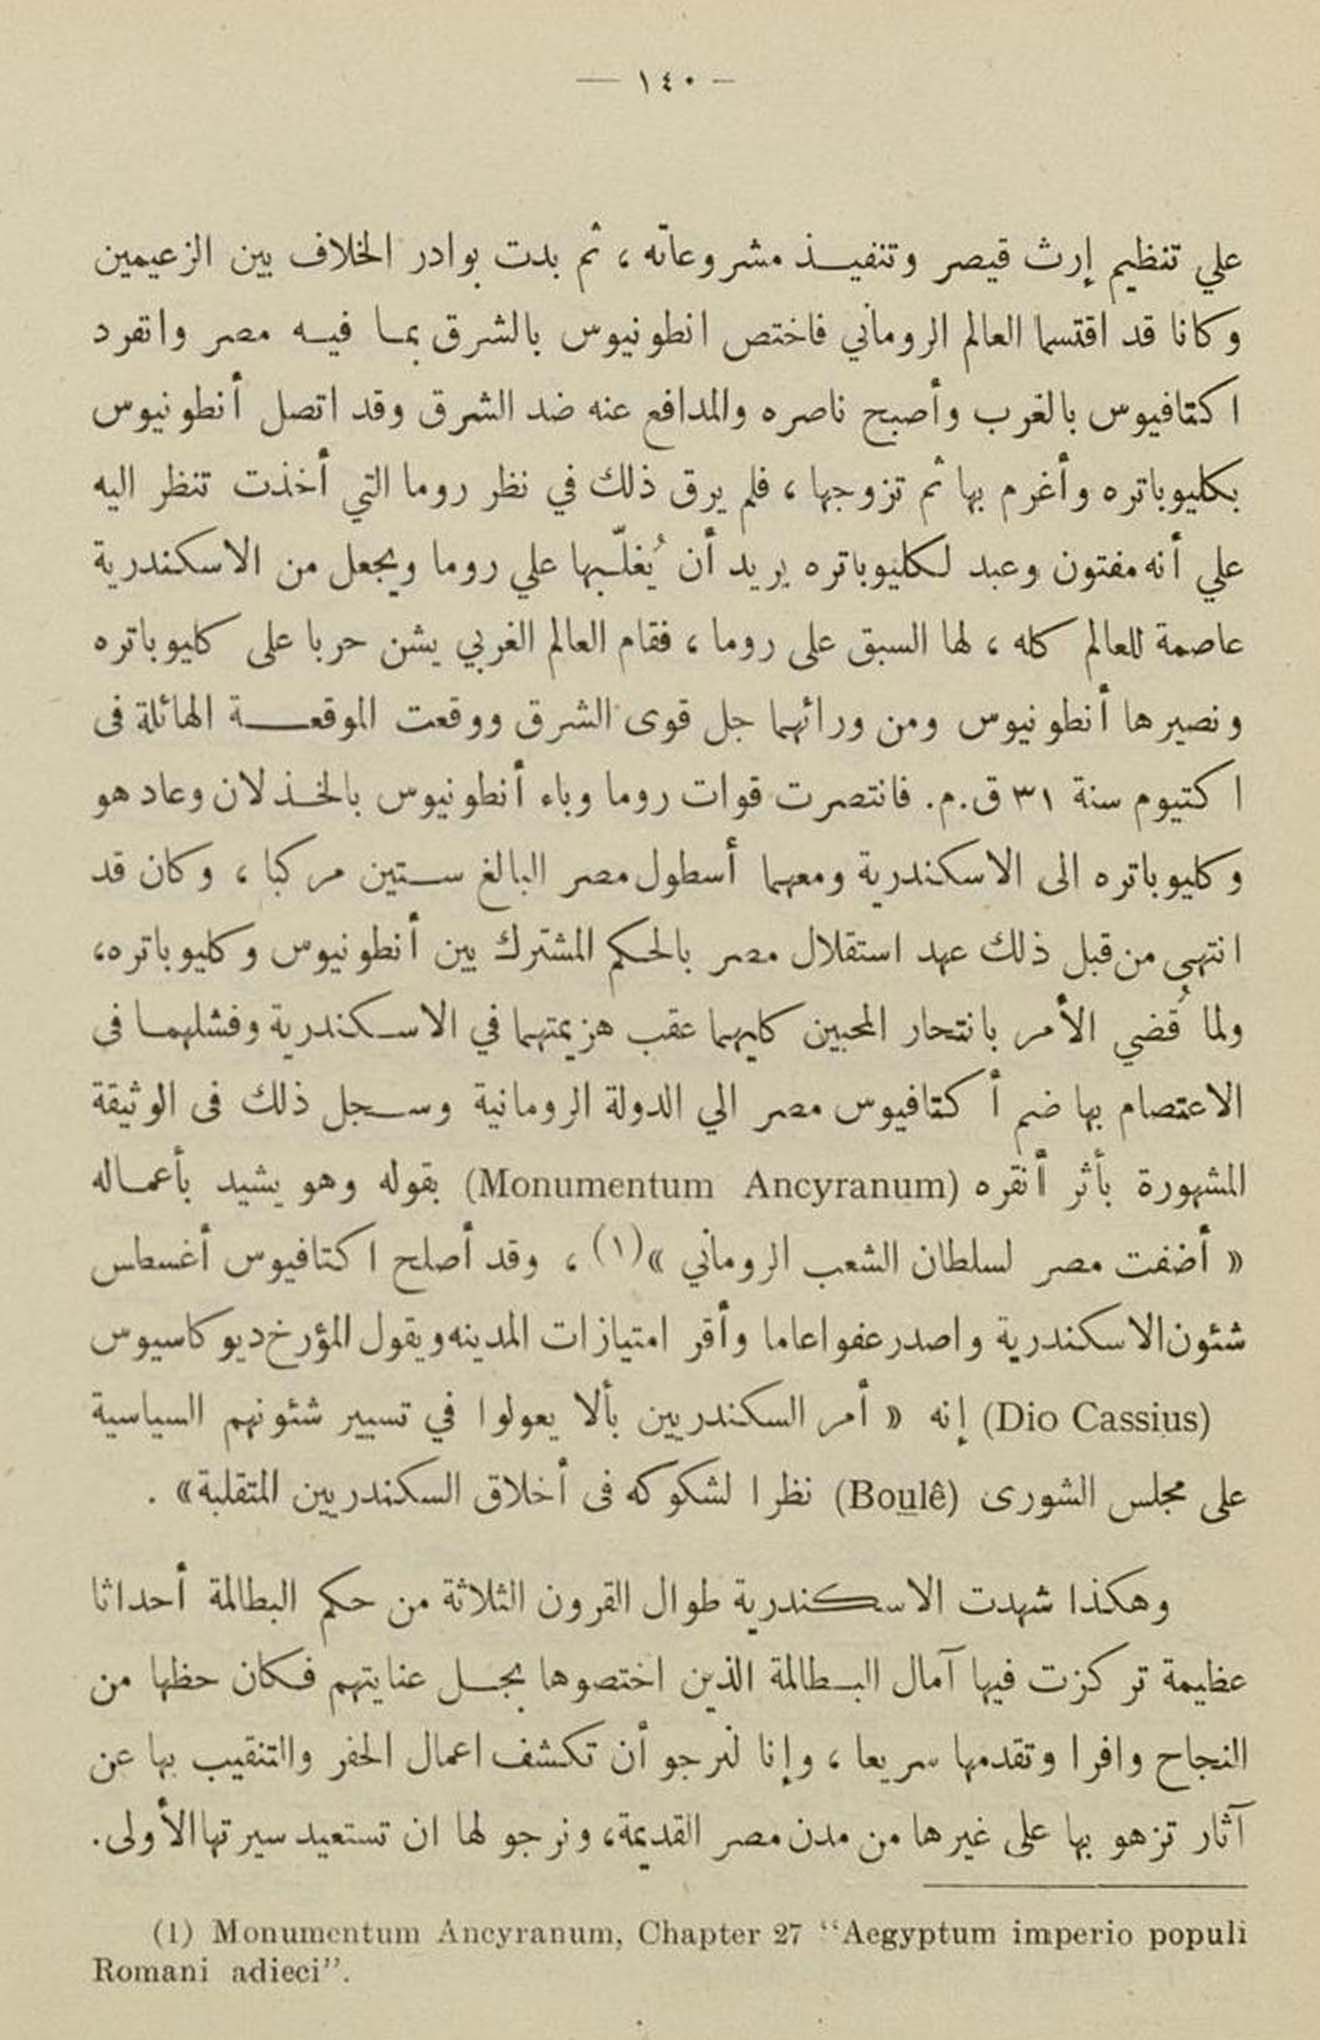 — ١٤٠ —
علي تنظيم إرث قيصر وتنفيـــذ مشروعاته ، ثم بدت بوادر الخلاف بين الزعيمين
وكانا قد اقتسما العالم الروماني فاختص انطونيوس بالشرق بمـا فيـه مصر وانفرد
اكتافيوس بالغرب وأصبح ناصره والمدافع عنه ضد الشرق وقد اتصل أنطونيوس
بكليوباتره وأغرم بها ثم تزوجها ، فلم يرق ذلك في نظر روما التي أخذت تنظر اليه
علي أنه مفتون وعبد لكليوباتره يريد أن يُغلّبها علي روما ويجعل من الاسكندرية
عاصمة للعالم كله ، لها السبق على روما ، فقام العالم الغربي يشن حربا على كليوباتره
ونصيرها أنطونيوس ومن ورائهما جل قوى الشرق ووقعت الموقعـــة الهائلة فى
اكتيوم سنة ٣١ ق.م. فانتصرت قوات روما وباء أنطونيوس بالخـذلان وعاد هو
وكليوباتره الى الاسكندرية ومعهما أسطول مصر البالغ ستين مركبا ، وكان قد
انتهى من قبل ذلك عهد استقلال مصر بالحكم المشترك بين أنطونيوس وكليوباتره،
ولما قُضي الأمر بانتحار المحبين كليهما عقب هزيمتهما في الاسكندرية وفشلهمـا فى
الاعتصام بها ضم أكتافيوس مصر الي الدولة الرومانية وسجل ذلك فى الوثيقة
المشهورة بأثر أنقره (Monumentum Ancyranum) بقوله وهو يشيد بأعمـاله
« أضفت مصر لسلطان الشعب الروماني »(١) ، وقد أصلح اكتافيوس أغسطس
شئون الاسكندرية واصدر عفوا عاما وأقر امتيازات المدينه ويقول المؤرخ ديو كاسيوس
(Dio Cassius) إنه « أمر السكندريين بألا يعولوا في تسيير شئونهم السياسية
على مجلس الشورى (Boulê) نظرا لشكوكه فى أخلاق السكندريين المتقلبة» .
وهكذا شهدت الاسكندرية طوال القرون الثلاثة من حكم البطالمة أحداثا
عظيمة تركزت فيها آمال البـطالمة الذين اختصوها بجـل عنايتهم فكان حظها من
النجاح وافرا وتقدمها سريعا ، وإنا لنرجو أن تكشف اعمال الحفر والتنقيب بها عن
آثار تزهو بها على غيرها من مدن مصر القديمة، ونرجو لها ان تستعيد سيرتها الأولى.
(1) Monumentum Ancyranum, Chapter 27 “Aegyptum imperio populi
Romani adieci”.